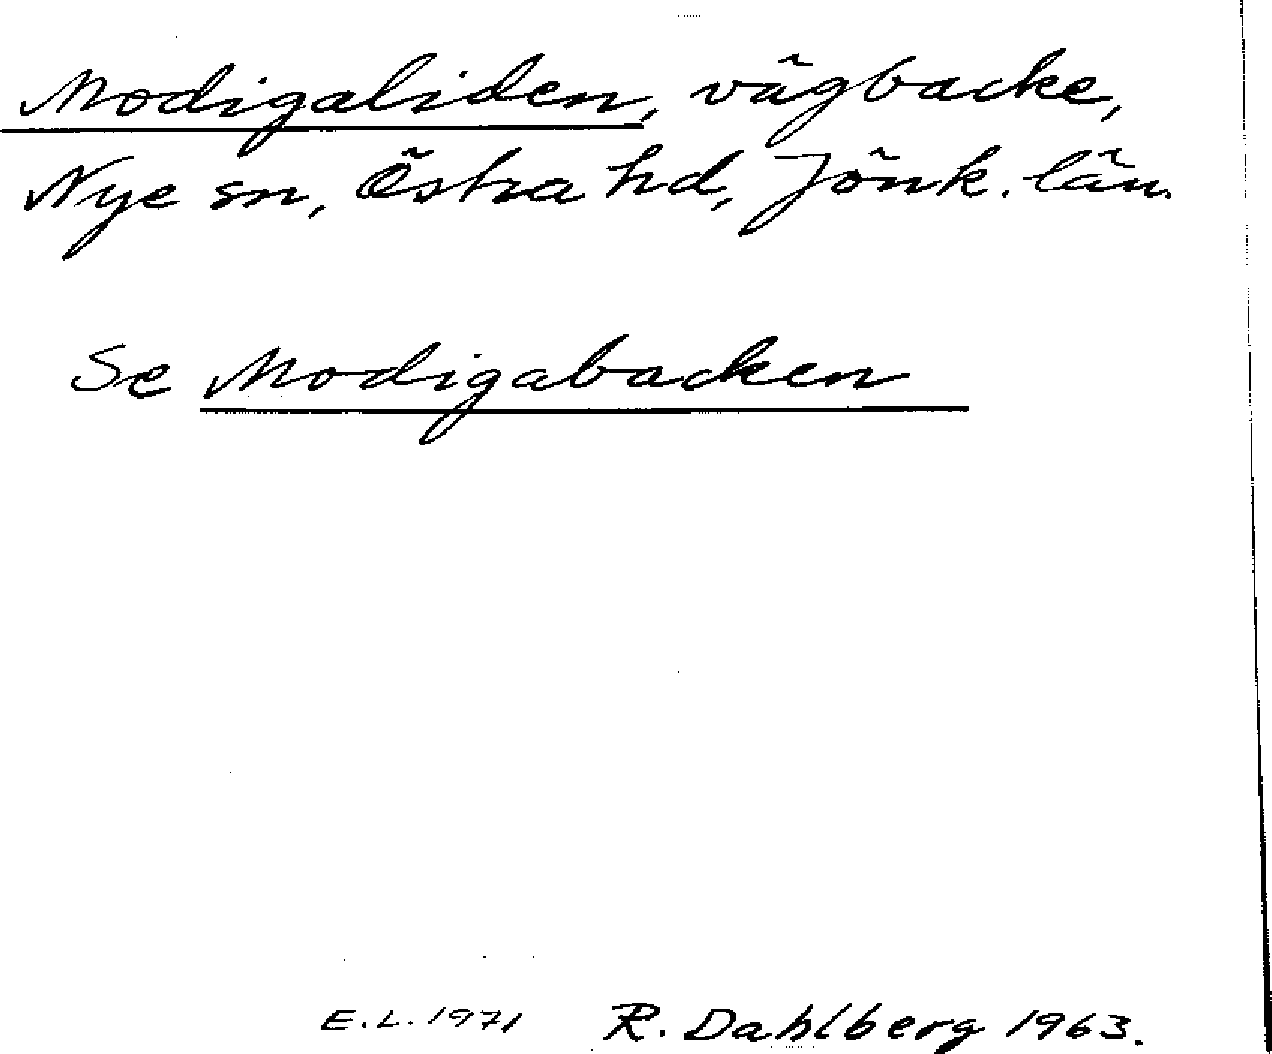 Modigaliden, vägbacke,
Nye sn, Östra hd, Jönk. län.
Se Modigabacken
E.L. 1971 R. Dahlberg 1963.